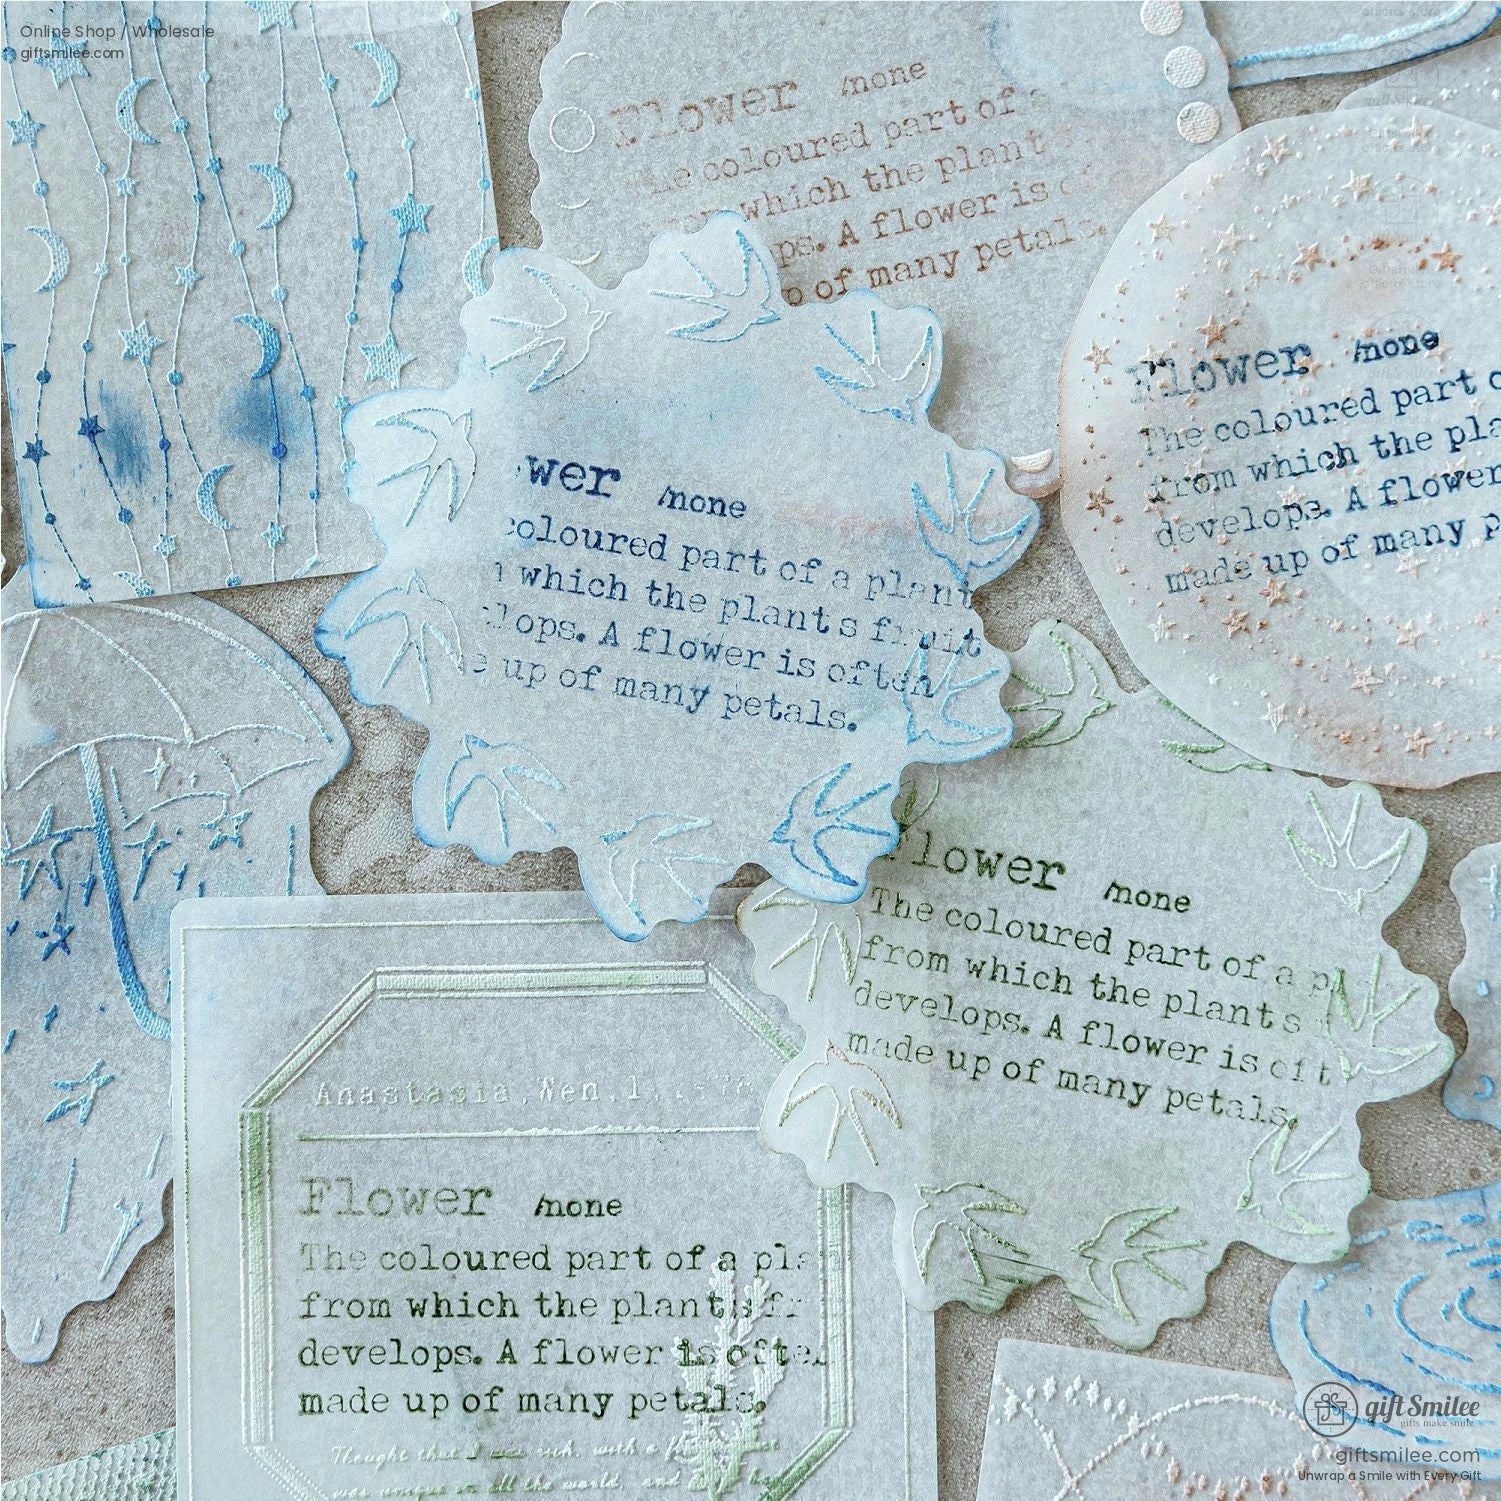 Online Shop / Wholesale
giftsmilee.com
Flower /none
coloured part of
which the plant
ps. A flower is
of many petals.
Flower /none
The coloured part
from which the
develops. A flower
made up of many
wer /none
coloured part of a plant
which the plants fruit
lops. A flower is often
e up of many petals.
Flower /none
The coloured part of a
from which the plants
develops. A flower is oft
made up of many petals.
Anastasia, Wen, 1,
Flower /none
The coloured part of a
from which the plants
develops. A flower is often
made up of many petals.
Thought that I was rich, with a
was unique in all the world, and
gift Smilee
gifts make smile
giftsmilee.com
Unwrap a Smile with Every Gift